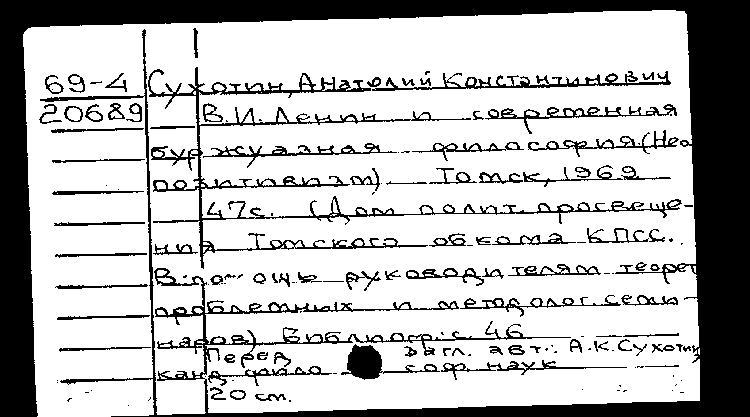 69-4 Сухотин, Анатолий Константинович
20689 В.И.Ленин и современная
буржуазная философия (Нео
позитивизм) Томск, 1969
47с. (Дом полит.просвеще-
ния Томского обкома КПСС.
В помощь руководителям теорет
проблемных и методолог.семи-
наров) Библиогр.: с. 46
Перед загл. авт.: А.К.Сухотин,
канд филособ. наук
20 cm.